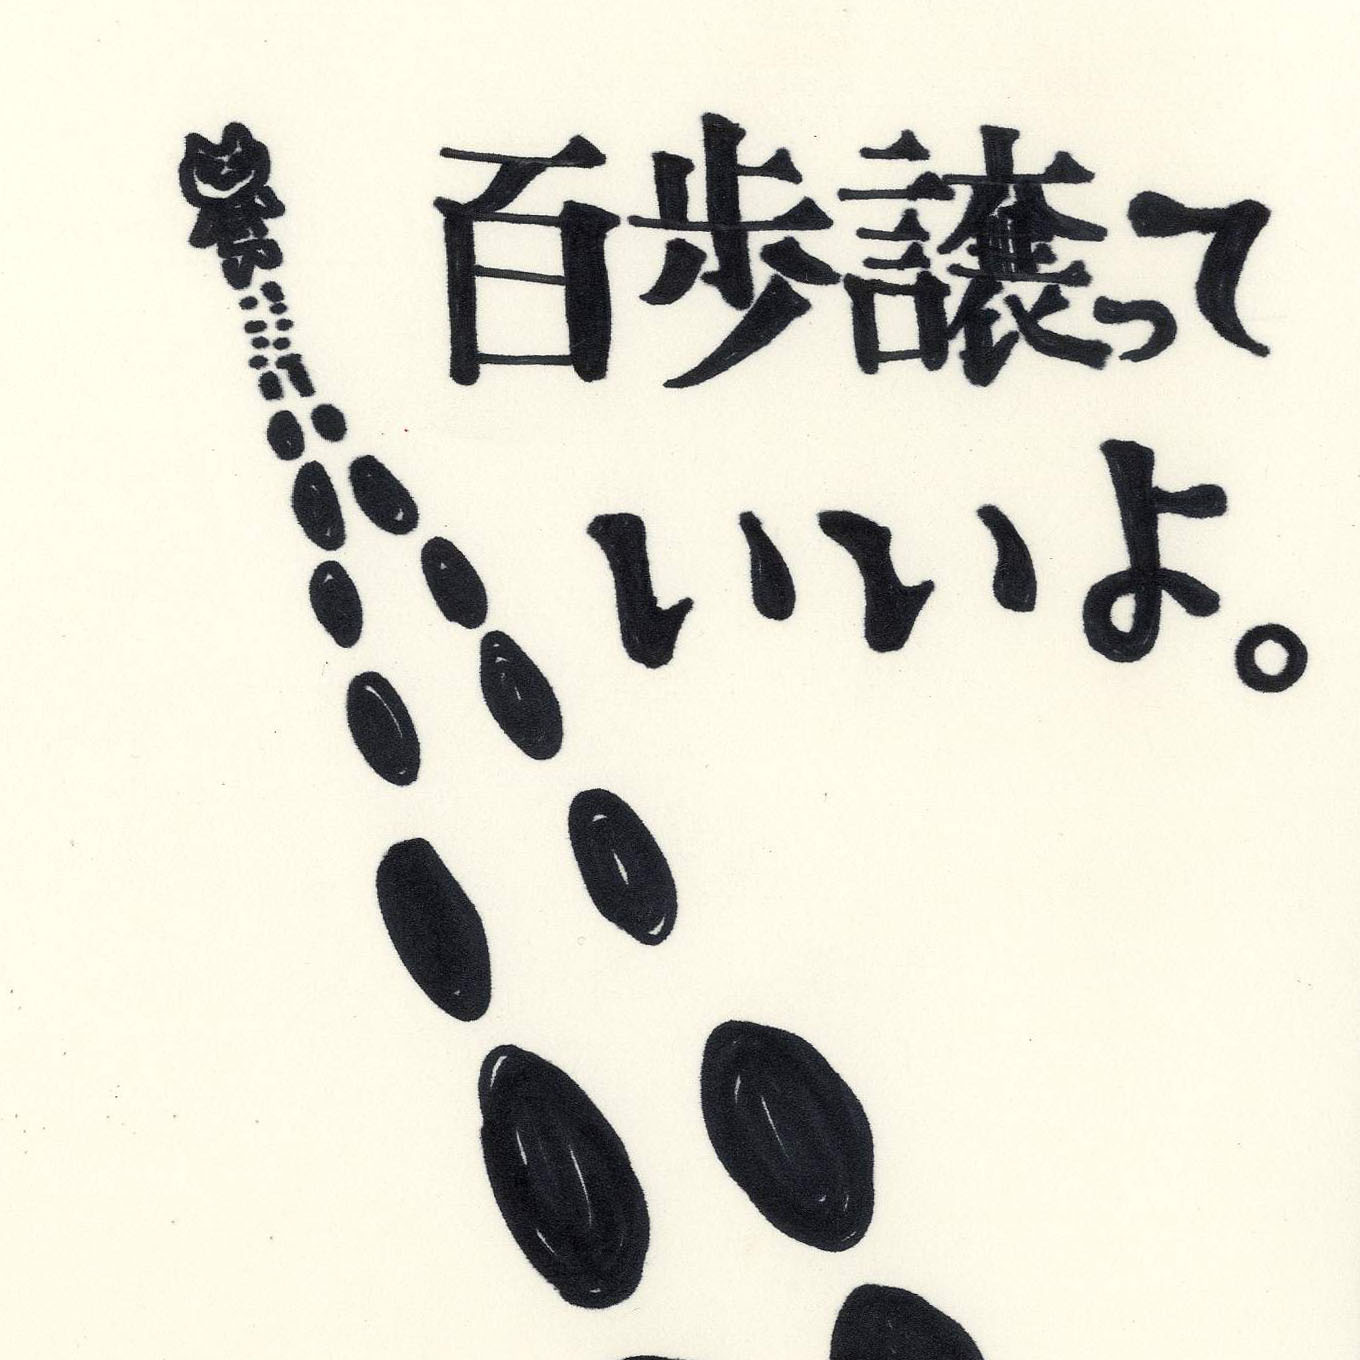 百歩譲って
いいよ。